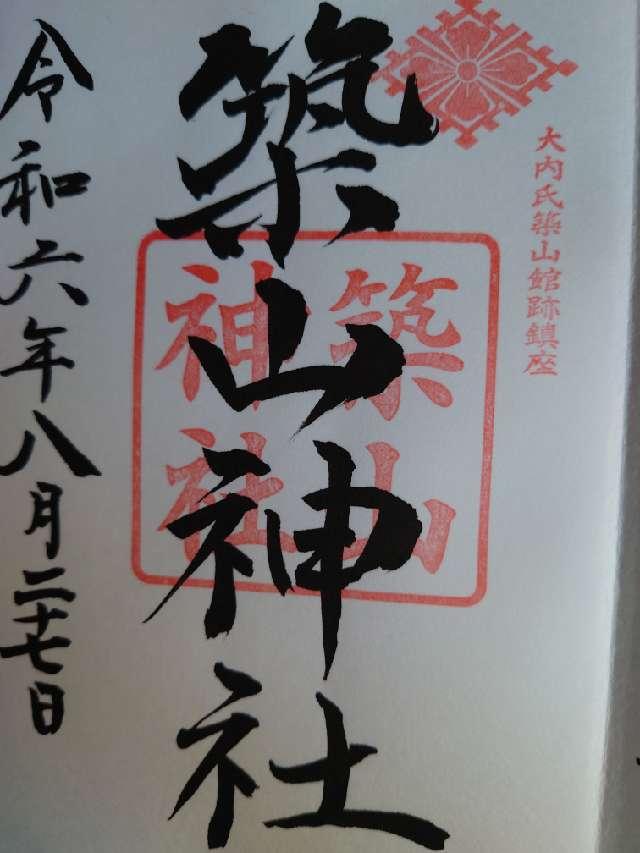 大内氏築山館跡鎮座
築山神社
築山
神社
令和六年八月二十七日